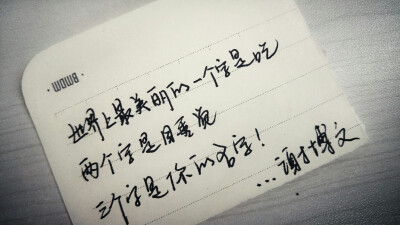 MOMO8
世界上最美丽的一个字是吃
两个字是目垂觉
三个字是你的名字!
...谢博文